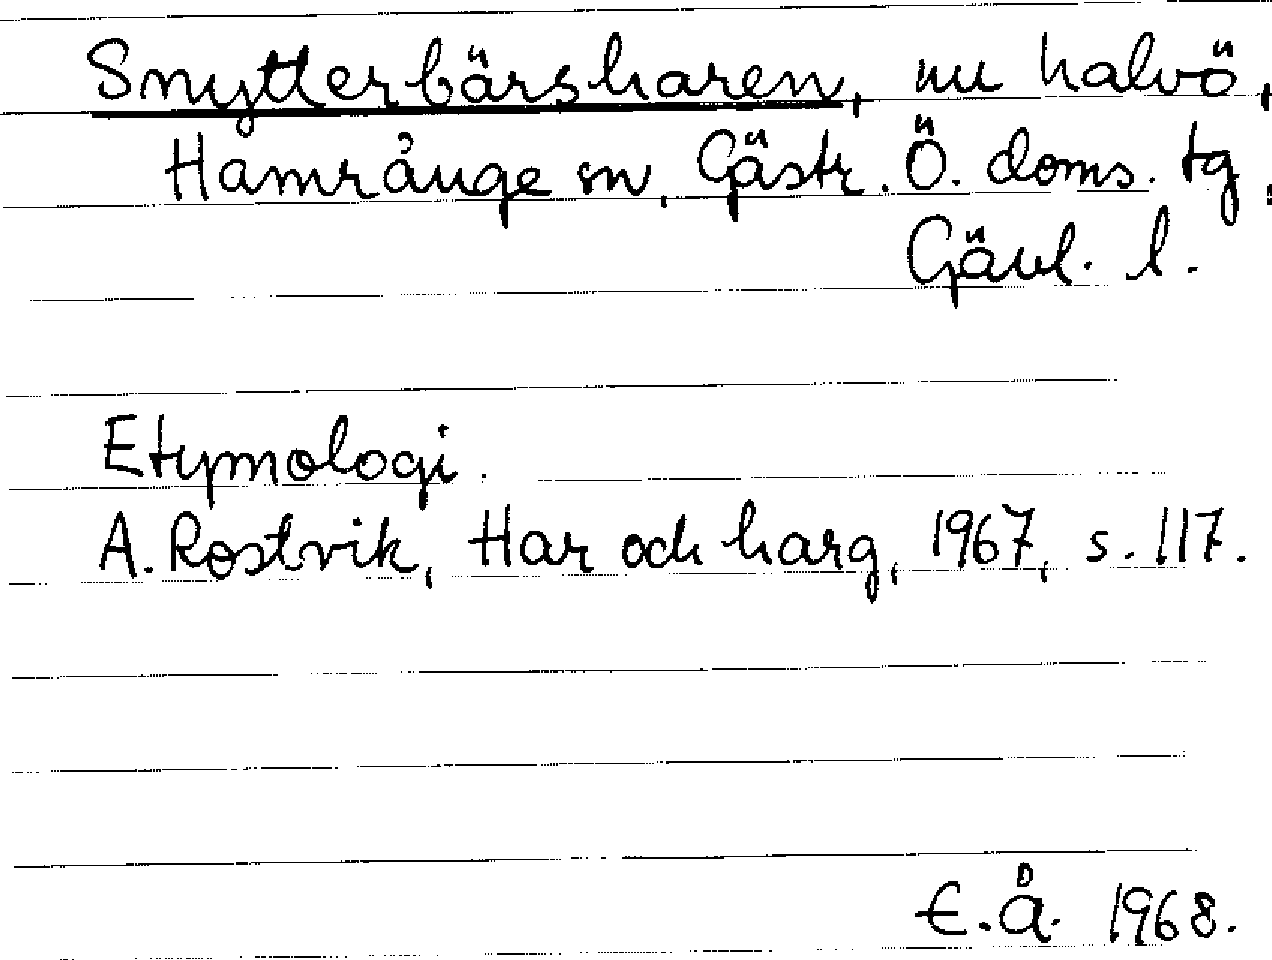 Snytterbärsharen, nu halvö,
Hamrånge sn, Gästr. Ö. doms. tg,
Gävl. l.
Etymologi.
A. Rostvik, Har och harg, 1967, s. 117.
E. Å. 1968.